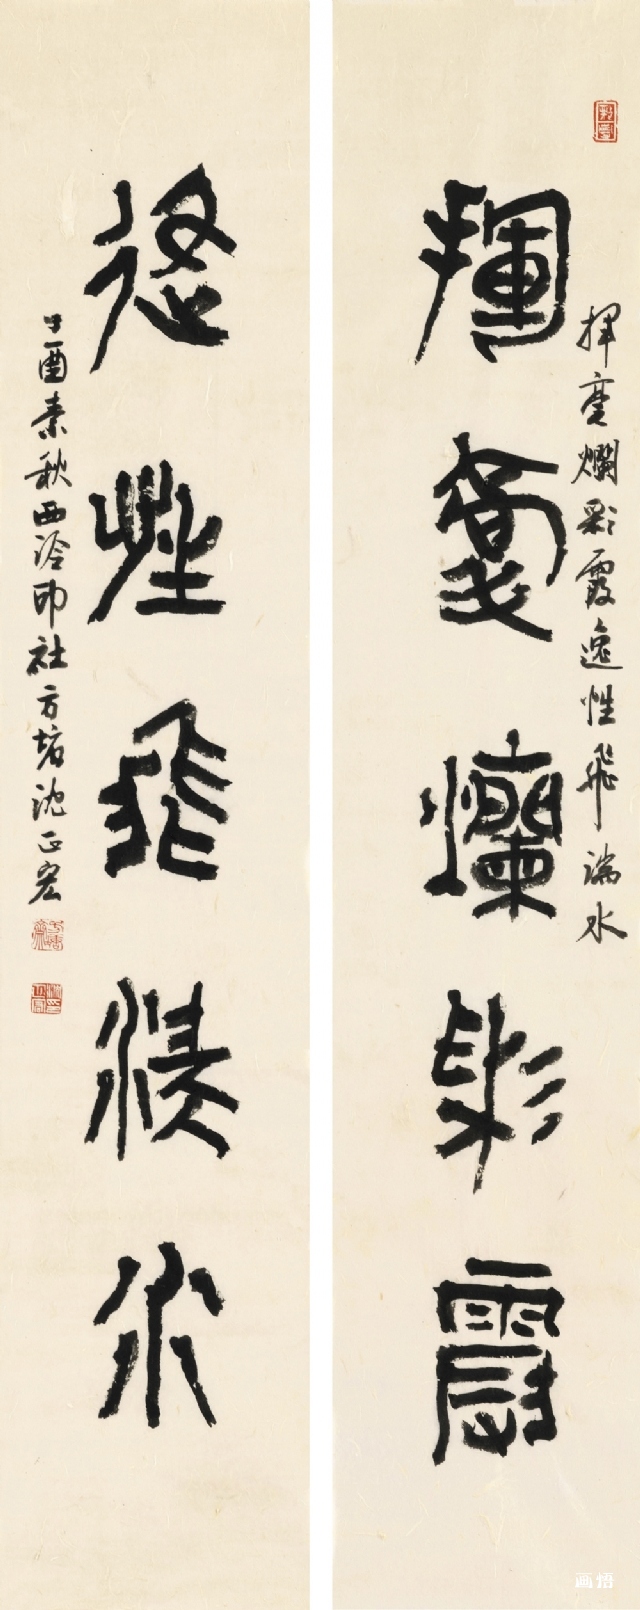 揮毫爛彩霞逸性飛湍水
揮毫爛彩霞
逸性飛湍水
丁酉素秋西泠印社方塘沈正宏
画悟